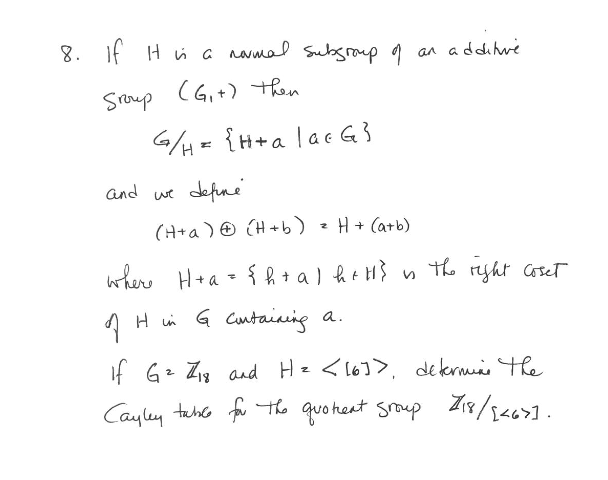 8. If H is a normal subgroup of an additive
group (G,+) then
G/H = {H+a | a ∈ G}
and we define
(H+a) ⊕ (H+b) = H + (a+b)
where H+a = {h+a | h ∈ H} is the right coset
of H in G containing a.
If G = ℤ₁₈ and H = <[6]>, determine the
Cayley table for the quotient group ℤ₁₈/[<6>].